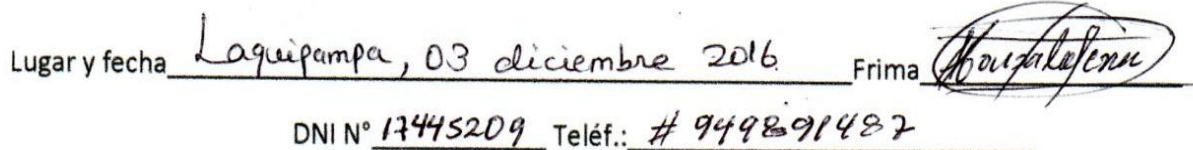 Lugar y fecha Laquipampa, 03 diciembre 2016 Frima
DNI N° 17445209 Teléf.: # 949891487